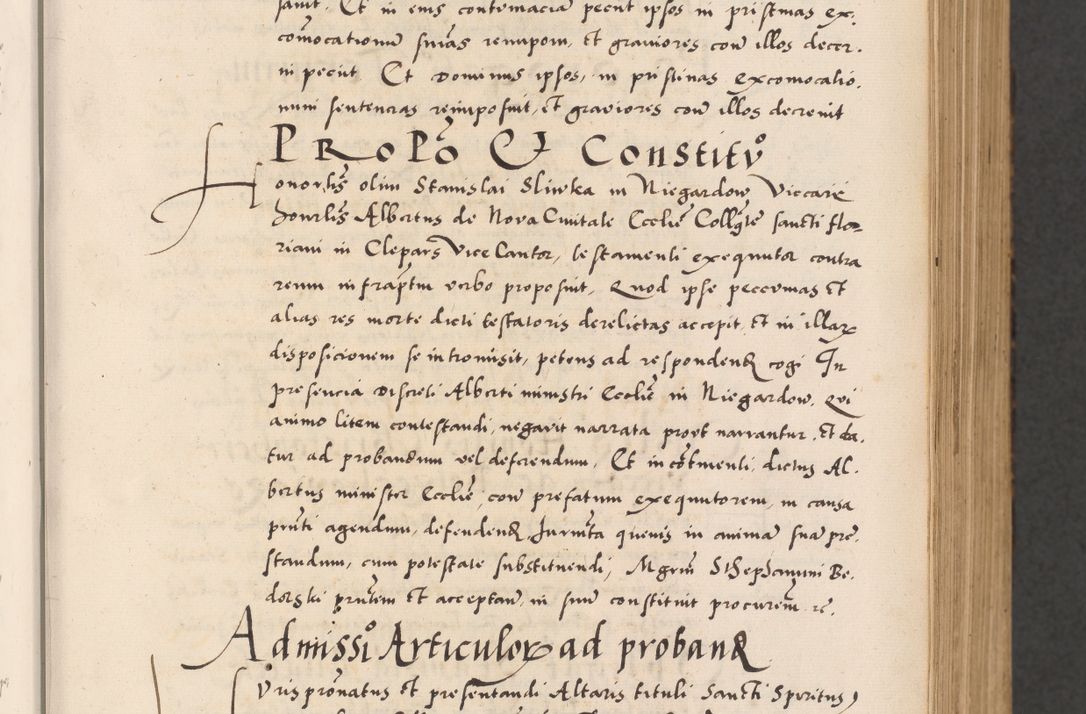 sauit, Et in eius contumacia petit ipsos in pristinas ex.
comocationum snias reimponi, et grauiores contra illos decer.
ni petiit Et Dominus ipsos, in pristinas excomocatio.
num sententias reimposuit, et grauiores contra illos decreuit
PRopo Et Constituo
Honorlis olim Stanislai Sliwka in Niegardow Viccarie
honrlis Albertus de Nova Ciuitate Ecclie Collgte sancti Flo=
riani in Clepars ViceCantor, testamenti exequutor contra
reum infraptm verbo proposuit, Quod ipse peccunias et
alias res morte dicti testatoris derelictas accepit, et in illar
disposicionem se intromisit, petens ad respondend cogi In
presencia Discreti Alberti ministri Ecclie in Niegardow. Qui
animo litem contestandi, negauit narrata prout narrantur, et da.
tur ad probandum vel deferendum, Et incotinenti, dictus Al.
bertus minister Ecclie, contra prefatum exequutorem, in causa
pnti agendum, defendend Jurnta queuis in anima sua pre.
standum, cum potestate substituendi, Mgrm Stephanum Be.
dorski pntem et acceptan, in suum constituit procurem re.
Admissio Articulor ad proband
Vris pronatus et presentandi Altaris tituli Sancti Speritus,